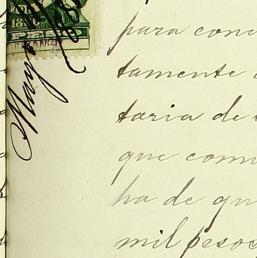 Mayo
para con
tamente
taria de
que com
ha de qu
mil pesos